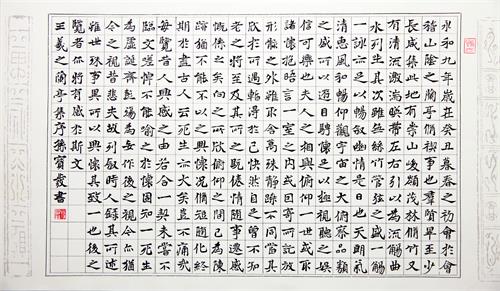 永和九年歲在癸丑暮春之初會於會
稽山陰之蘭亭脩禊事也羣賢畢至少
長咸集此地有崇山峻領茂林脩竹又
有清流激湍暎帶左右引以為流觴曲
水列坐其次雖無絲竹管弦之盛一觴
一詠亦足以暢敘幽情是日也天朗氣
清惠風和暢仰觀宇宙之大俯察品類
之盛所以遊目騁懷足以極視聽之娛
信可樂也夫人之相與俯仰一世或取
諸懷抱晤言一室之內或因寄所託放
形骸之外雖趣舍萬殊靜躁不同當其
欣於所遇暫得於己快然自足曾不知
老之將至及其所之既惓情隨事遷感
慨係之矣向之所欣俛仰之間以為陳
跡猶不能不以之興懷況脩短隨化終
期於盡古人云死生亦大矣豈不痛哉
每覽昔人興感之由若合一契未嘗不
臨文嗟悼不能喻之於懷固知一死生
為虛誕齊彭殤為妄作後之視今亦猶
今之視昔悲夫故列敘時人錄其所述
雖世殊事異所以興懷其致一也後之
覽者亦將有感於斯文
王羲之蘭亭集序孫寶霞書